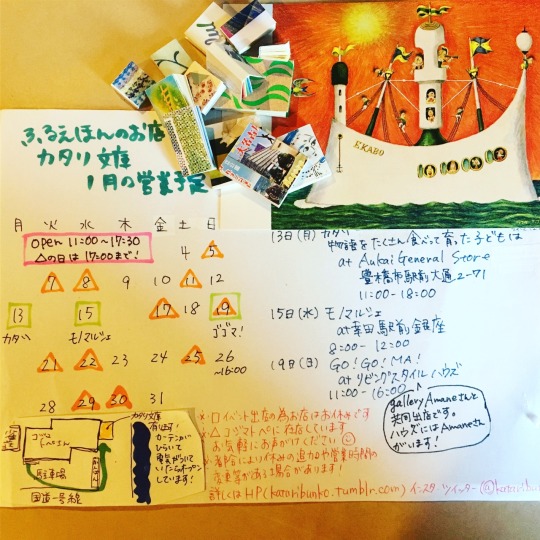 ふるえほんのお店
カタリ文庫
1月の営業予定
EKABO
月 火 水 木 金 土 日
open 11:00~17:30
△の日は 17:00まで!
4 5
7 8 9 10 11 12
13 15 17 18 19
カタツ モノマルシェ ゴゴマ!
21 22 23 24 25 26
~16:00
28 29 30 31
13日(月) カタツ
物語をたくさん食べて育った子どもは
at Aukai General Store
豊橋市駅前大通2-71
11:00-18:00
15日(水) モノマルシェ
at 幸田駅前銀座
8:00- 12:00
19日(日) GO! GO! MA!
at リビングスタイルハウズ
11:00-16:00
gallery Amaneさんと
共同出店です。
ハウズにはAmaneさん
がいます!
※□イベント出店の為お店はお休みです
※△コジマトペに在店しています
お気軽にお声がけください
※都合により休みの追加や営業時間の
変更等がある場合があります!
詳しくはHP(kataribunko.tumblr.com) インスタ ツイッター
カタリ文庫
有ります!
カーテンが
ひらいて
電気がついて
いたらオープン
しています!
コジマ
トペさん
駐車場
国道一号線